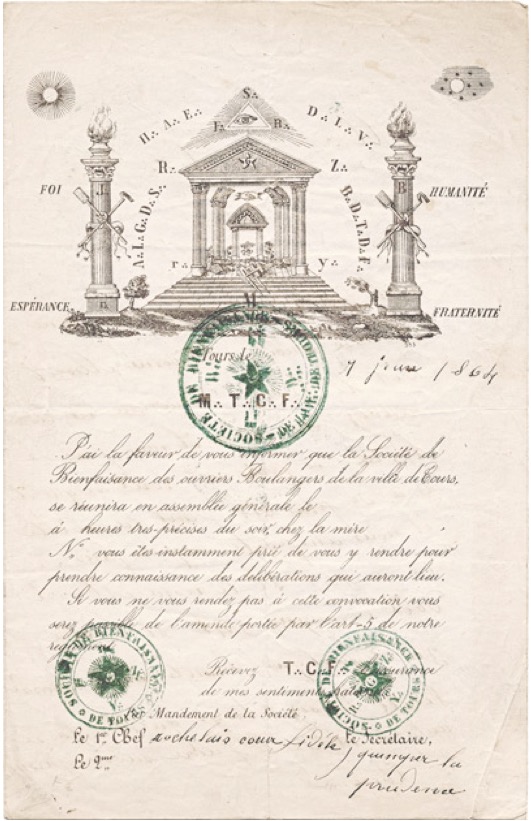 S∴
F∴ B∴
H∴ A∴ E∴ D∴ L∴ V∴
R∴ Z∴
A∴ L∴ G∴ D∴ S∴ B∴ D∴ T∴ D∴ F∴
J. B.
FOI HUMANITÉ
r∴ y∴
ESPÉRANCE FRATERNITÉ
M
Tours le 7 1864
M∴ T∴ C∴ F∴
SOCIÉTÉ DE BIENFAISANCE
J'ai la faveur de vous informer que la Société de
Bienfaisance des ouvriers Boulangers de la ville de Tours,
se réunira en assemblée générale le
à heures très-précises du soir, chez la mère
N.° vous êtes instamment prié de vous y rendre pour
prendre connaissance des délibérations qui auront lieu.
Si vous ne vous rendez pas à cette convocation vous
serez passible de l'amende portée par l'art-5 de notre
Recevez T∴ C∴ F∴ l'assurance
de mes sentiments
SOCIÉTÉ DE BIENFAISANCE DE TOURS
SOCIÉTÉ DE BIENFAISANCE DE TOURS
Mandement de la Société,
le 1er Chef rochelais coeur fidèle le Secrétaire,
Le 2me quimper la
prudence